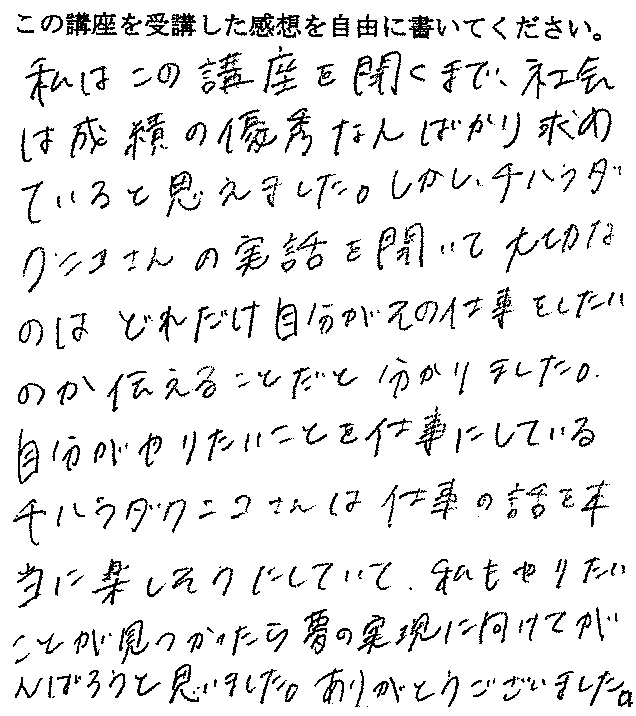 この講座を受講した感想を自由に書いてください。
私はこの講座を聞くまで、社会
は成績の優秀なんばかり求め
ていると思えました。しかし、チハラダ
クニコさんの実話を聞いて大切な
のは どれだけ自分がその仕事をしたい
のか伝えることだと分かりました。
自分がやりたいことを仕事にしている
チハラダクニコさんは仕事の話を本
当に楽しそうにしていて、私もやりたい
ことが見つかったら夢の実現に向けてが
んばろうと思いました。ありがとうございました。